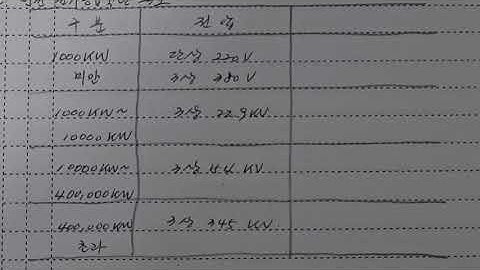 구 분 전 압
1000KW 단상 220V
미만 3상 380V
1000KW~ 3상 22.9KV
10000KW
10000KW~ 3상 KV
400,000KW
400,000KW 3상 345 KV
초과